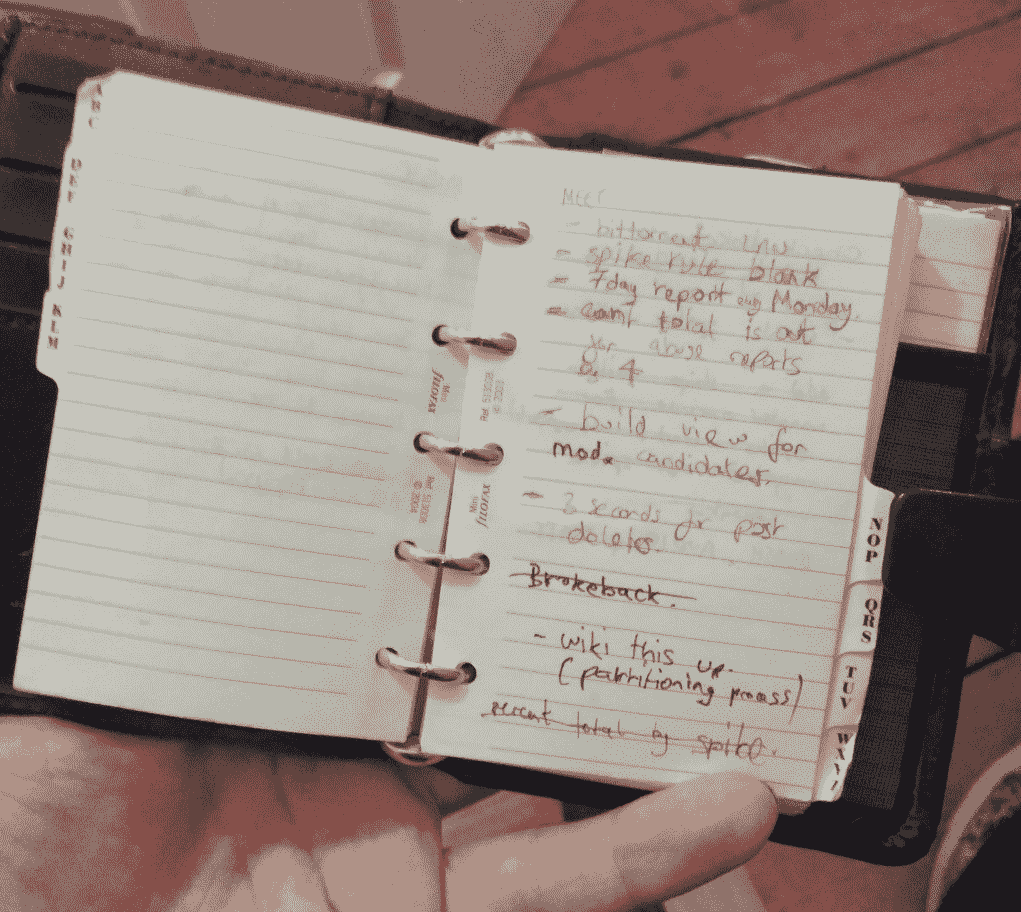 A B C
D E F
G H I J
K L M
Mini
filofax
Ref 513008
© 2004
Mini
filofax
- bittorrent
- spike rule blank
- 7day report Monday.
- total is out
for abuse reports
by 4
- build view for
mod. candidates.
- seconds for post
deletes.
Brokeback.
- wiki this up.
(partitioning process)
percent total by spike.
N O P
Q R S
T U V
W X Y Z